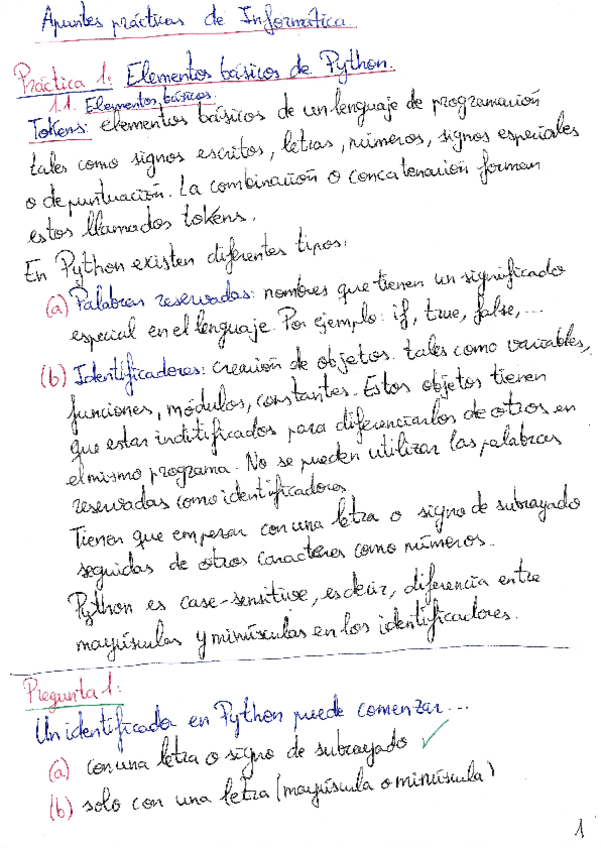 Apuntes prácticas de Informática.
Práctica 1: Elementos básicos de Python.
1.1. Elementos básicos.
Tokens: elementos básicos de un lenguaje de programación
tales como signos escritos, letras, números, signos especiales
o de puntuación. La combinación o concatenación forman
estos llamados tokens.
En Python existen diferentes tipos:
(a) Palabras reservadas: nombres que tienen un significado
especial en el lenguaje. Por ejemplo: if, true, false, ...
(b) Identificadores: creación de objetos tales como variables,
funciones, módulos, constantes. Estos objetos tienen
que estar inditificados para diferenciarlos de otros en
el mismo programa. No se pueden utilizar las palabras
reservadas como identificadores
Tienen que empezar con una letra o signo de subrayado
seguidas de otros caracteres como números.
Python es case-sensitive, es decir, diferencia entre
mayúsculas y minúsculas en los identificadores.
Pregunta 1:
Un identificado en Python puede comenzar...
(a) con una letra o signo de subrayado ✓
(b) solo con una letra (mayúscula o minúscula)
1